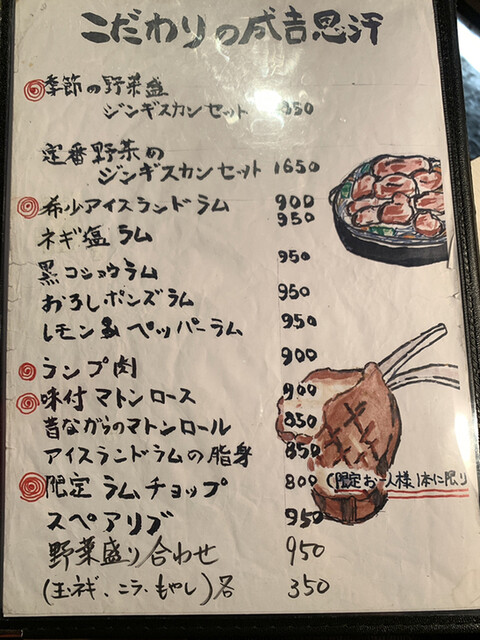 こだわりの成吉思汗
季節の野菜盛
ジンギスカンセット 1850
定番野菜の
ジンギスカンセット 1650
希少アイスランドラム 900
950
ネギ塩ラム
950
黒コショウラム
おろしポンズラム 950
レモン&ペッパーラム 950
ランプ肉 900
味付マトンロース 900
昔ながらのマトンロール 850
アイスランドラムの脂身 850
限定ラムチョップ 800 (限定お一人様1本に限り
スペアリブ 950
野菜盛り合わせ 950
(玉ネギ、ニラ、もやし)各 350